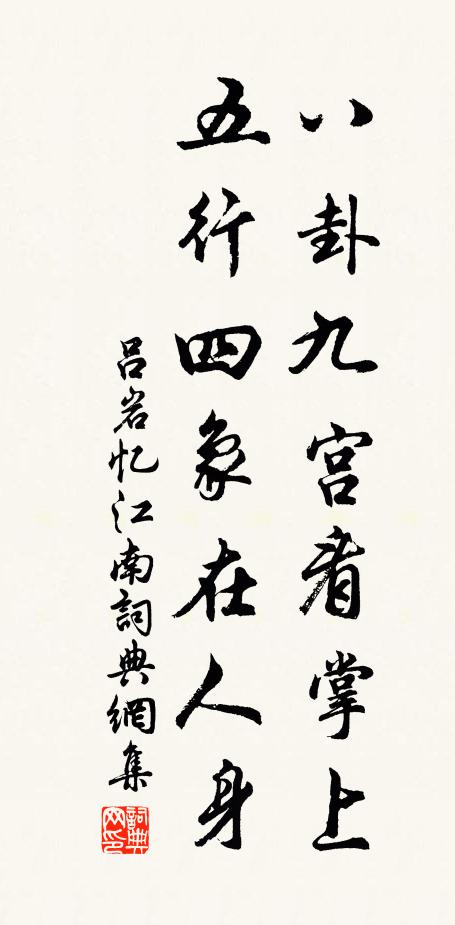 八卦九宫看掌上
五行四象在人身
吕岩忆江南詞典網集
詞典网印